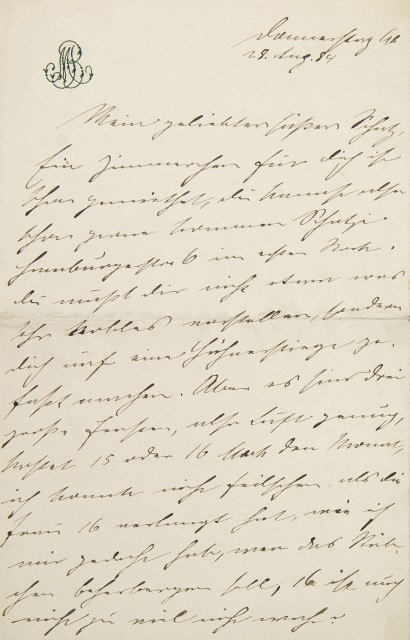 Donnerstag Ab.
28. Aug. 84
Mein geliebter süßer Schatz,
Ein Zimmerchen für dich ist
schon gemiethet, du kannst also
schon gerne kommen Schatzi
Hamburgerstr 6 im ersten Stock.
du mußt dir nicht etwa was
sehr Nobles vorstellen, sondern
dich auf eine Hühnerstiege ge-
faßt machen. Aber es sind drei
große Fenster, also Luft genug,
kostet 15 oder 16 Mark den Monat,
ich konnte nicht feilschen, als die
Frau 16 verlangt hat, wie ich
mir gedacht habe, man das
beherbergen soll, 16 ist auch
nicht zu viel nicht wahr?